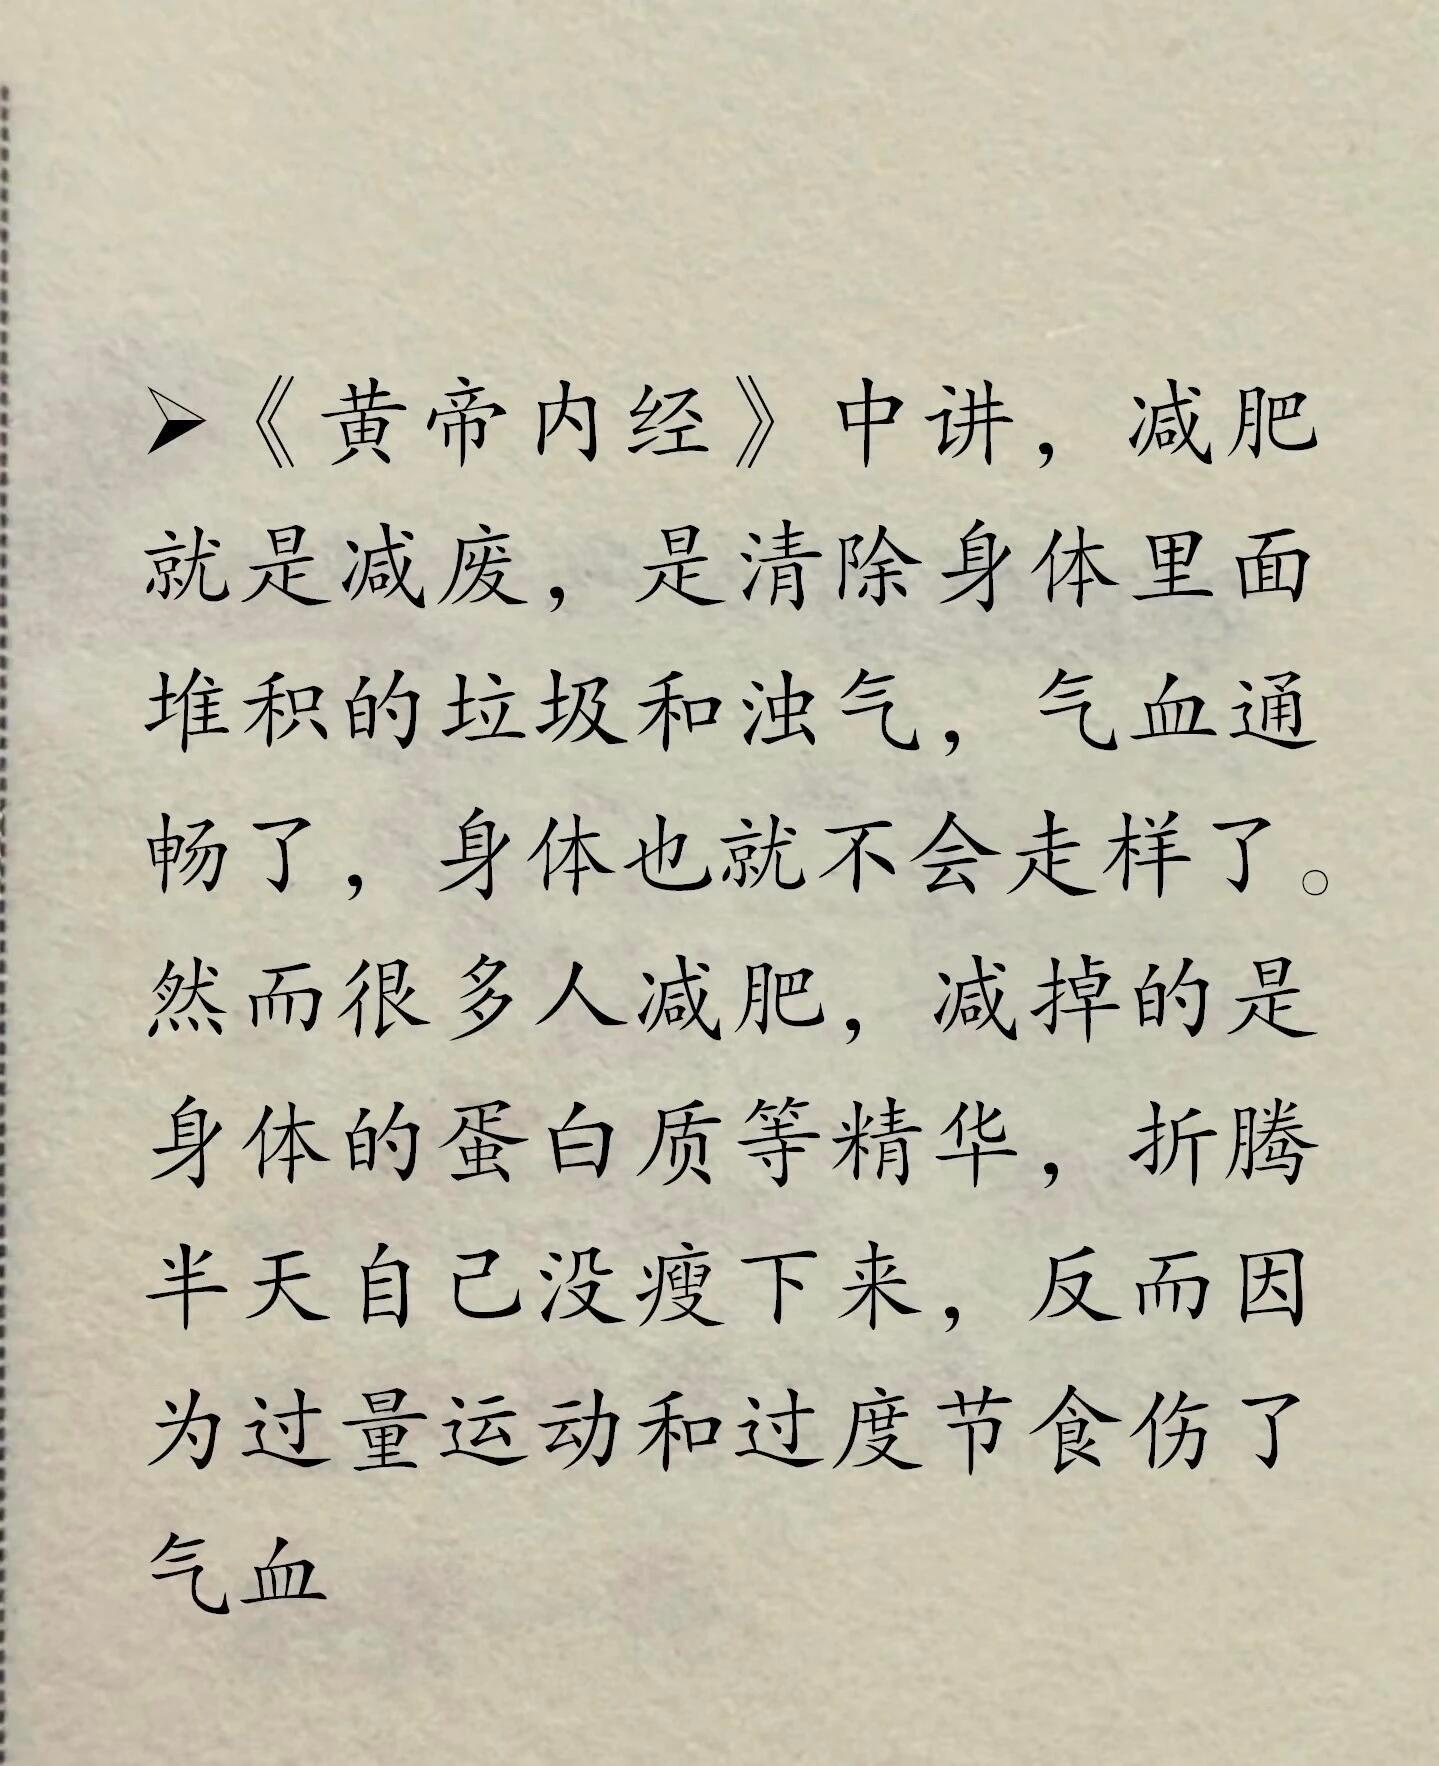 ➢《黄帝内经》中讲，减肥
就是减废，是清除身体里面
堆积的垃圾和浊气，气血通
畅了，身体也就不会走样了。
然而很多人减肥，减掉的是
身体的蛋白质等精华，折腾
半天自己没瘦下来，反而因
为过量运动和过度节食伤了
气血